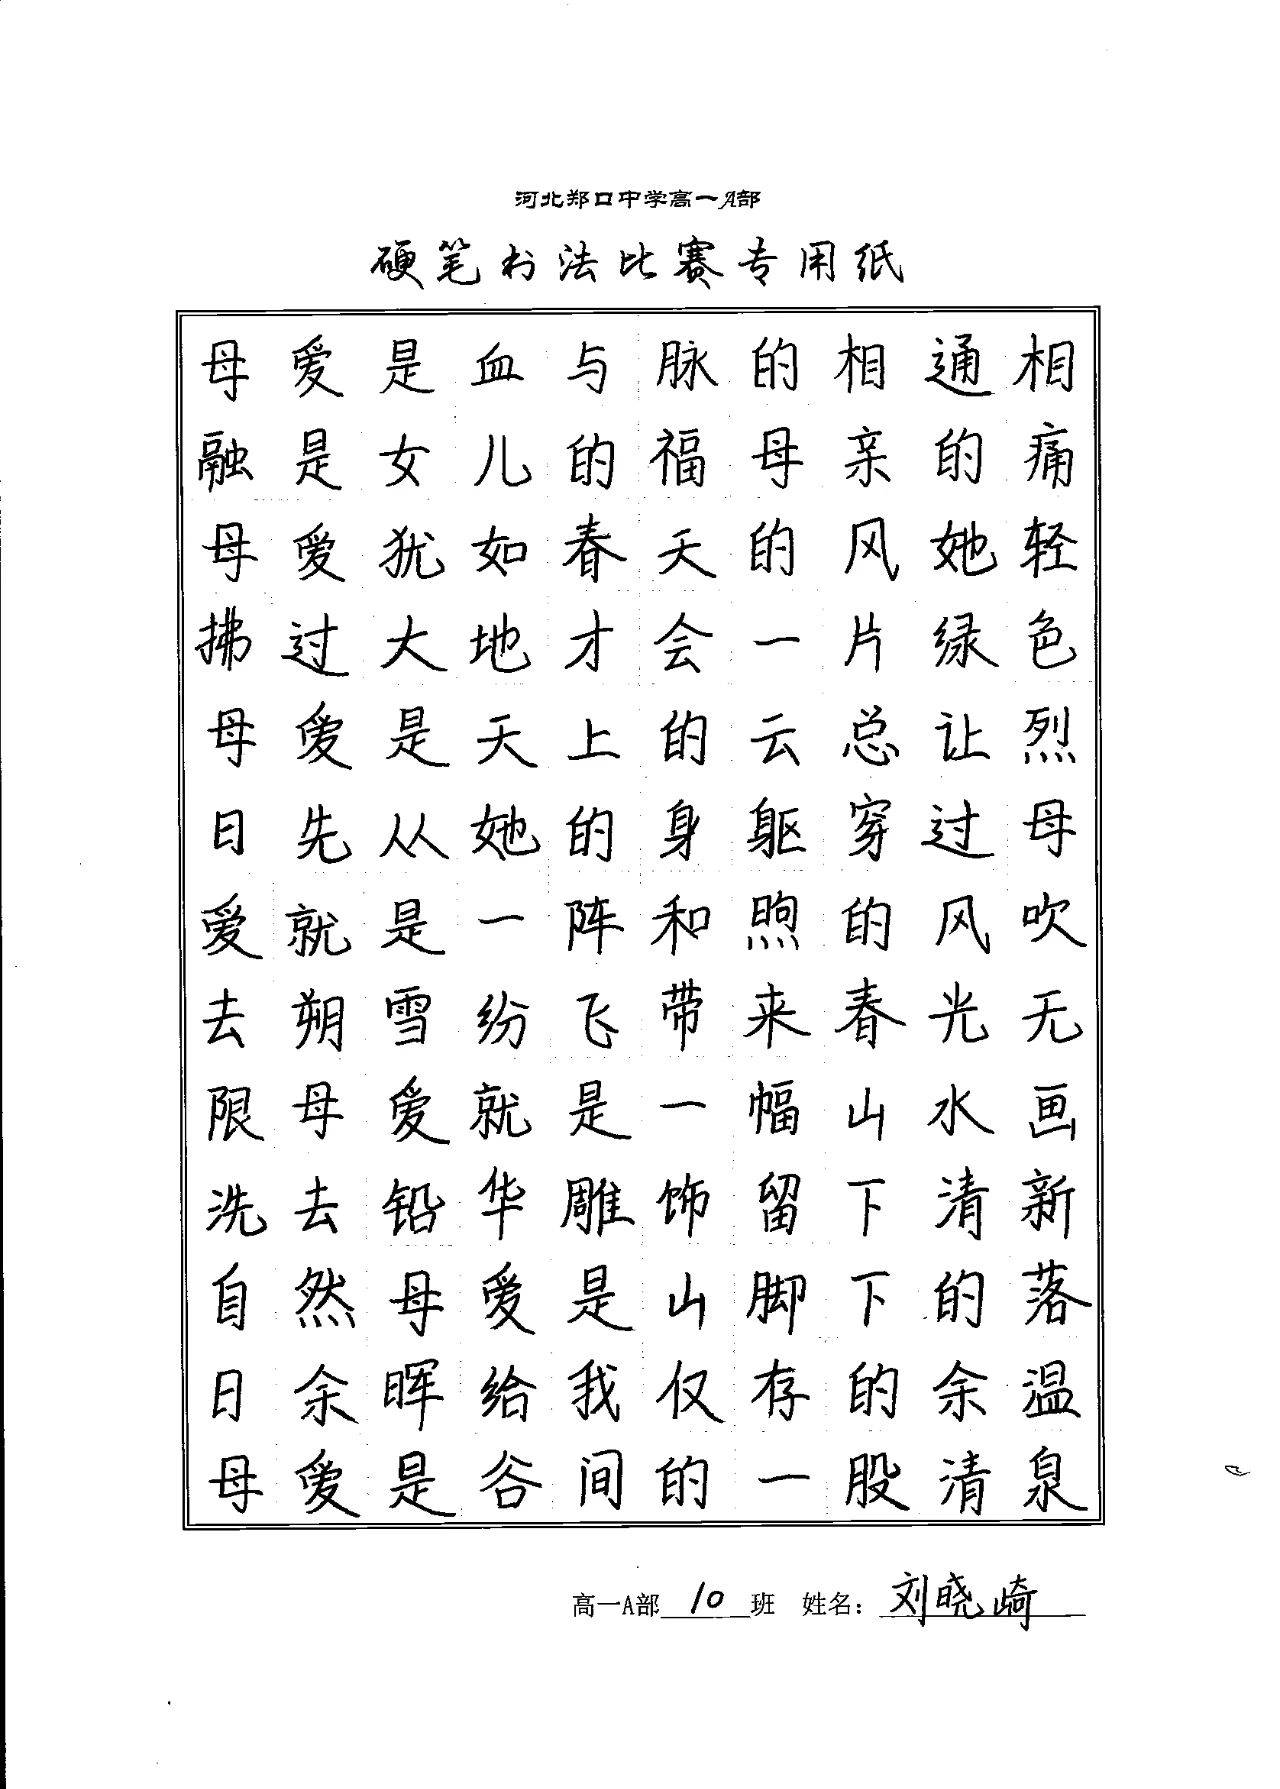 河北郑口中学高一A部
硬笔书法比赛专用纸
母爱是血与脉的相通相
融是女儿的福母亲的痛
母爱犹如春天的风她轻
拂过大地才会一片绿色
母爱是天上的云总让烈
日先从她的身躯穿过母
爱就是一阵和煦的风吹
去朔雪纷飞带来春光无
限母爱就是一幅山水画
洗去铅华雕饰留下清新
自然母爱是山脚下的落
日余晖给我仅存的余温
母爱是谷间的一股清泉
高一A部10班 姓名：刘晓崎